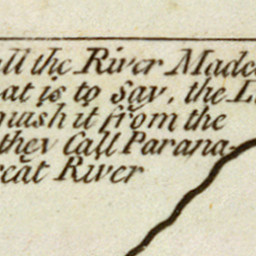 all the River Made
at is to say, the L
guish it from the
they Call Parana-
reat River